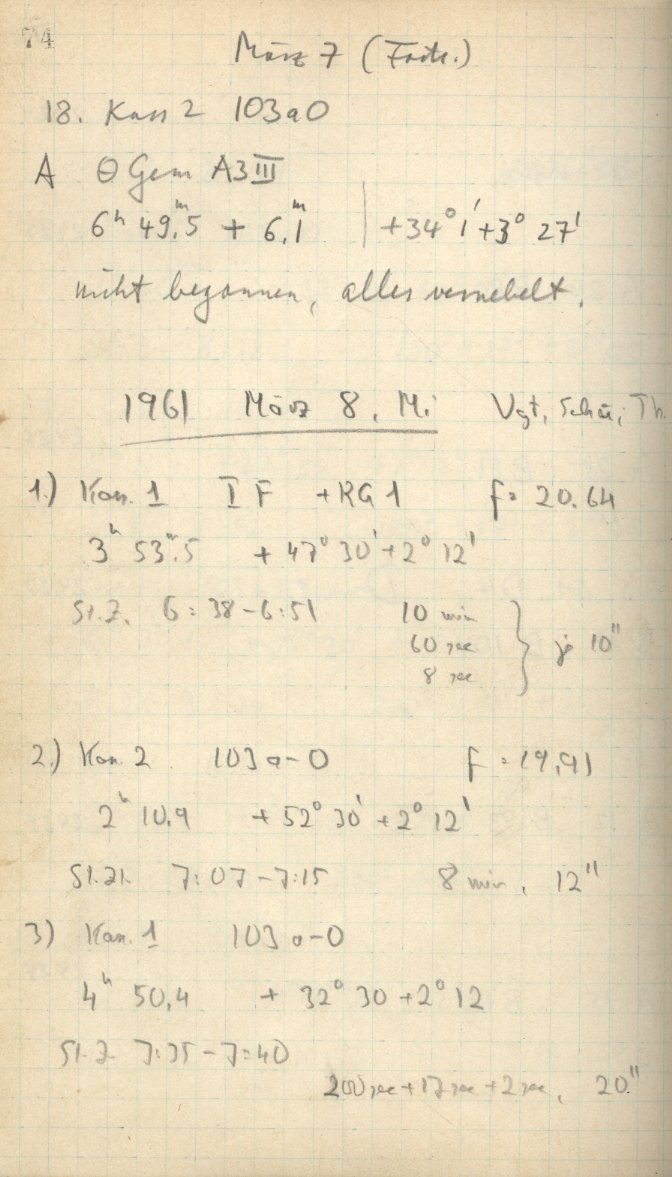 74
März 7 (Forts.)
18. Kass 2 103a0
A Θ Gem A3III
6ʰ 49ᵐ.5 + 6.1ᵐ | +34° 1' +3° 27'
nicht begonnen, alles vernebelt.
1961 März 8, Mi Vgt, Schü, Th.
1.) Kas. 1 I F +RG 1 f = 20.64
3ʰ 53ᵐ.5 + 47° 30' + 2° 12'
St.Z. 6:38 - 6:51 10 min
60 sec } je 10"
8 sec
2.) Kas. 2 103a-O f = 19,91
2ʰ 10,9 + 52° 30' + 2° 12'
St.Zt. 7:07 - 7:15 8 min, 12"
3) Kas. 1 103a-O
4ʰ 50,4 + 32° 30 + 2° 12
St.Z 7:35 - 7:40
200 sec + 17 sec + 2 sec, 20"